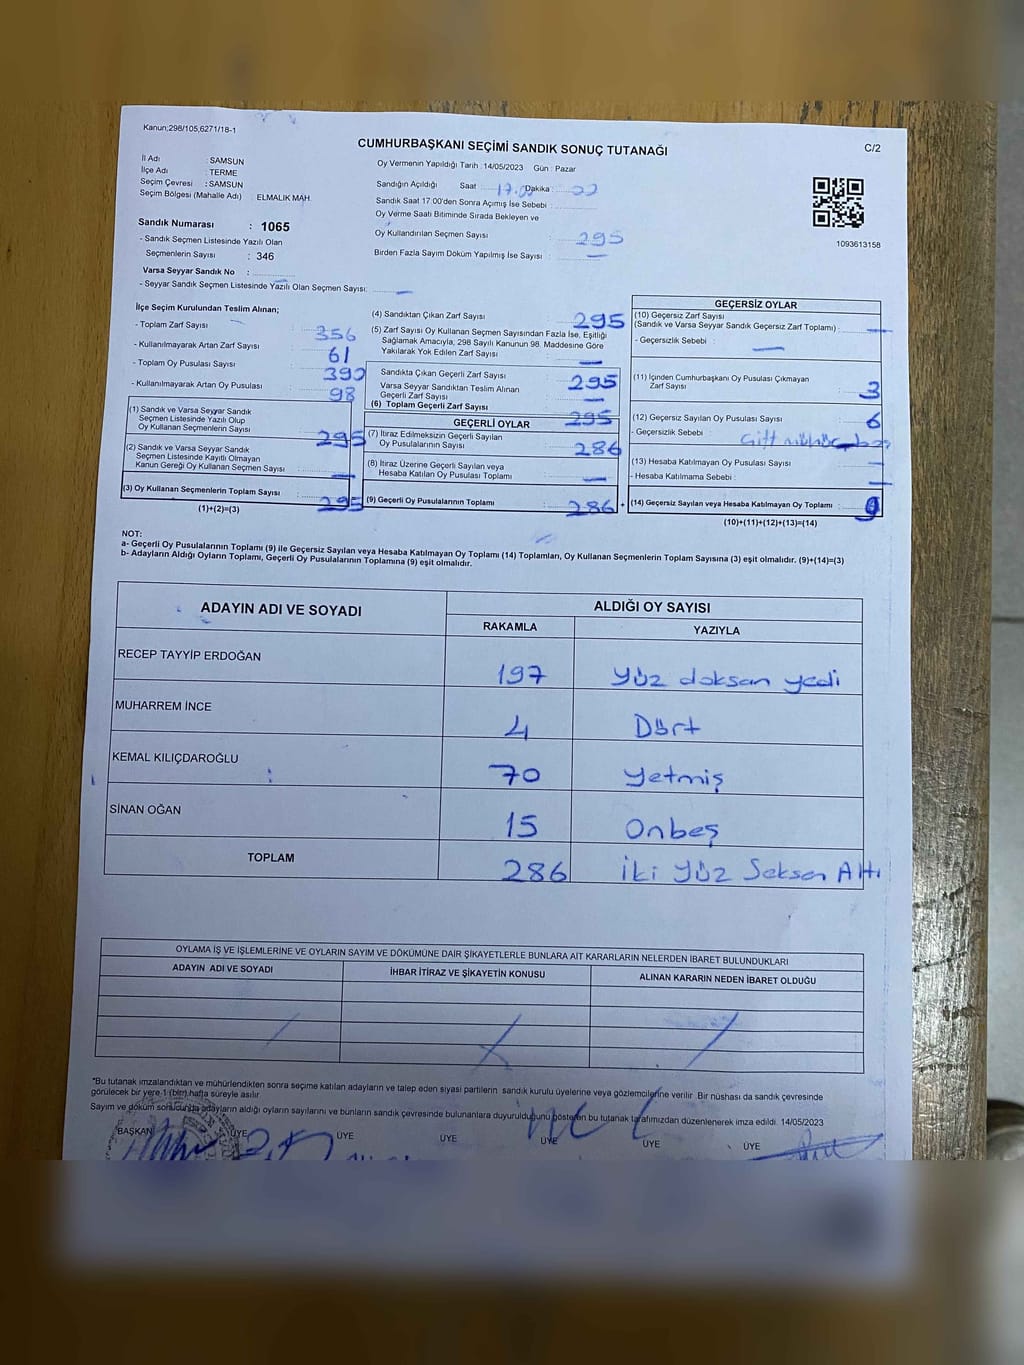 Kanun;298/105,6271/18-1
CUMHURBAŞKANI SEÇİMİ SANDIK SONUÇ TUTANAĞI
C/2
İl Adı : SAMSUN
İlçe Adı : TERME
Seçim Çevresi : SAMSUN
Seçim Bölgesi (Mahalle Adı) ELMALIK MAH.
Sandık Numarası : 1065
- Sandık Seçmen Listesinde Yazılı Olan
Seçmenlerin Sayısı : 346
Varsa Seyyar Sandık No :
- Seyyar Sandık Seçmen Listesinde Yazılı Olan Seçmen Sayısı: —
Oy Vermenin Yapıldığı Tarih :14/05/2023 Gün : Pazar
Sandığın Açıldığı Saat 17.00 Dakika :
Sandık Saat 17:00'den Sonra Açımış İse Sebebi :
Oy Verme Saati Bitiminde Sırada Bekleyen ve
Oy Kullandırılan Seçmen Sayısı : 295
Birden Fazla Sayım Döküm Yapılmış İse Sayısı : —
1093613158
İlçe Seçim Kurulundan Teslim Alınan;
- Toplam Zarf Sayısı : 356
- Kullanılmayarak Artan Zarf Sayısı : 61
- Toplam Oy Pusulası Sayısı : 390
- Kullanılmayarak Artan Oy Pusulası : 98
(1) Sandık ve Varsa Seyyar Sandık
Seçmen Listesinde Yazılı Olup
Oy Kullanan Seçmenlerin Sayısı : 295
(2) Sandık ve Varsa Seyyar Sandık
Seçmen Listesinde Kayıtlı Olmayan
Kanun Gereği Oy Kullanan Seçmen Sayısı : —
(3) Oy Kullanan Seçmenlerin Toplam Sayısı : 295
(1)+(2)=(3)
(4) Sandıktan Çıkan Zarf Sayısı : 295
(5) Zarf Sayısı Oy Kullanan Seçmen Sayısından Fazla İse, Eşitliği
Sağlamak Amacıyla, 298 Sayılı Kanunun 98. Maddesine Göre
Yakılarak Yok Edilen Zarf Sayısı : —
Sandıkta Çıkan Geçerli Zarf Sayısı : 295
Varsa Seyyar Sandıktan Teslim Alınan
Geçerli Zarf Sayısı : —
(6) Toplam Geçerli Zarf Sayısı : 295
GEÇERLİ OYLAR
(7) İtiraz Edilmeksizin Geçerli Sayılan
Oy Pusulalarının Sayısı : 286
(8) İtiraz Üzerine Geçerli Sayılan veya
Hesaba Katılan Oy Pusulası Toplamı : —
(9) Geçerli Oy Pusulalarının Toplamı : 286
GEÇERSİZ OYLAR
(10) Geçersiz Zarf Sayısı
(Sandık ve Varsa Seyyar Sandık Geçersiz Zarf Toplamı) : —
- Geçersizlik Sebebi : —
(11) İçinden Cumhurbaşkanı Oy Pusulası Çıkmayan
Zarf Sayısı : 3
(12) Geçersiz Sayılan Oy Pusulası Sayısı : 6
- Geçersizlik Sebebi : Çift
(13) Hesaba Katılmayan Oy Pusulası Sayısı : —
- Hesaba Katılmama Sebebi : —
+ (14) Geçersiz Sayılan veya Hesaba Katılmayan Oy Toplamı : 9
(10)+(11)+(12)+(13)=(14)
NOT:
a- Geçerli Oy Pusulalarının Toplamı (9) ile Geçersiz Sayılan veya Hesaba Katılmayan Oy Toplamı (14) Toplamları, Oy Kullanan Seçmenlerin Toplam Sayısına (3) eşit olmalıdır. (9)+(14)=(3)
b- Adayların Aldığı Oyların Toplamı, Geçerli Oy Pusulalarının Toplamına (9) eşit olmalıdır.
ADAYIN ADI VE SOYADI
ALDIĞI OY SAYISI
RAKAMLA YAZIYLA
RECEP TAYYİP ERDOĞAN 197 Yüz doksan yedi
MUHARREM İNCE 4 Dört
KEMAL KILIÇDAROĞLU 70 Yetmiş
SİNAN OĞAN 15 Onbeş
TOPLAM 286 İki Yüz Seksen Altı
OYLAMA İŞ VE İŞLEMLERİNE VE OYLARIN SAYIM VE DÖKÜMÜNE DAİR ŞİKAYETLERLE BUNLARA AİT KARARLARIN NELERDEN İBARET BULUNDUKLARI
ADAYIN ADI VE SOYADI İHBAR İTİRAZ VE ŞİKAYETİN KONUSU ALINAN KARARIN NEDEN İBARET OLDUĞU
*Bu tutanak imzalandıktan ve mühürlendikten sonra seçime katılan adayların ve talep eden siyasi partilerin sandık kurulu üyelerine veya gözlemcilerine verilir. Bir nüshası da sandık çevresinde
görülecek bir yere 1 (bir) hafta süreyle asılır.
Sayım ve döküm sonucunda adayların aldığı oyların sayılarını ve bunların sandık çevresinde bulunanlara duyurulduğunu gösteren bu tutanak tarafımızdan düzenlenerek imza edildi. 14/05/2023
BAŞKAN ÜYE ÜYE ÜYE ÜYE ÜYE ÜYE